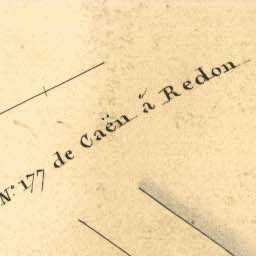 N.º 177 de Caën á Redon